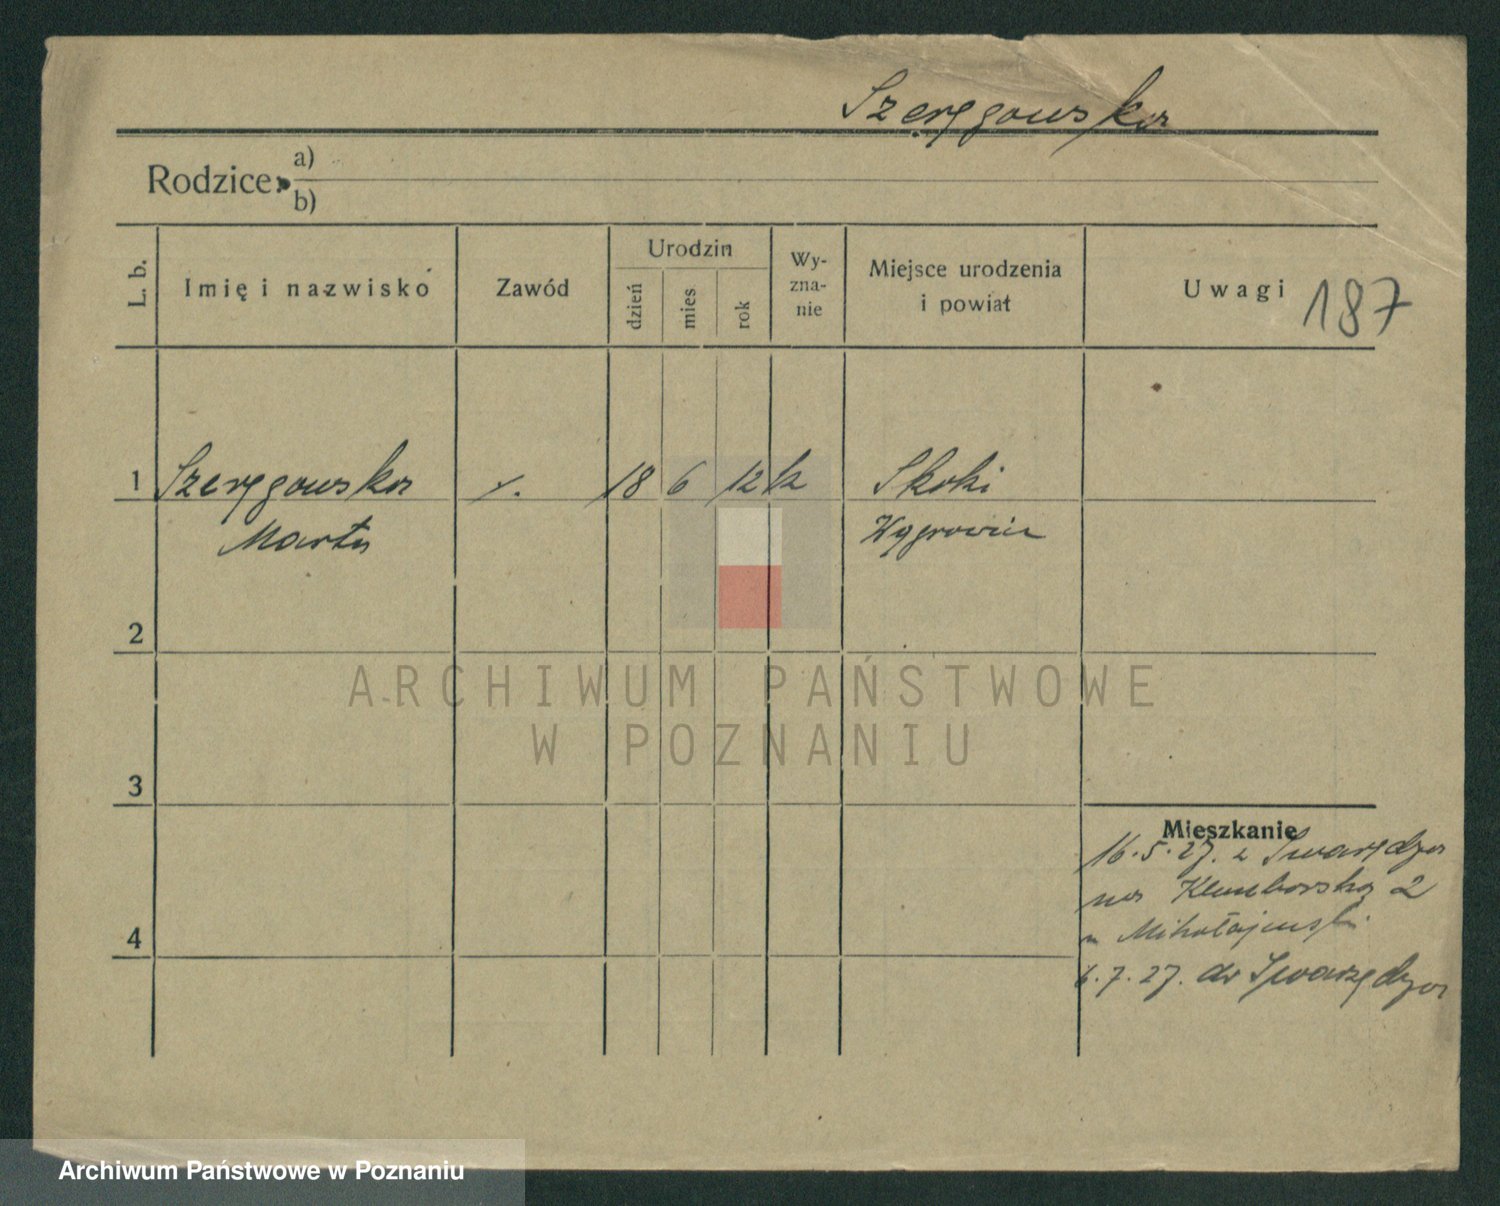 Szeręgowska
Rodzice: a)
b)
L. b.
Imię i nazwisko
Zawód
Urodzin
dzień
mies
rok
Wy-
zna-
nie
Miejsce urodzenia
i powiat
Uwagi
187
1 Szeręgowska 18 6 12 k Skoki
Marta Wągrowiec
2
3
4
Mieszkanie
16.5.27. z Swarzędza
na 2
6.7.27. do Swarzędza
ARCHIWUM PAŃSTWOWE
W POZNANIU
Archiwum Państwowe w Poznaniu